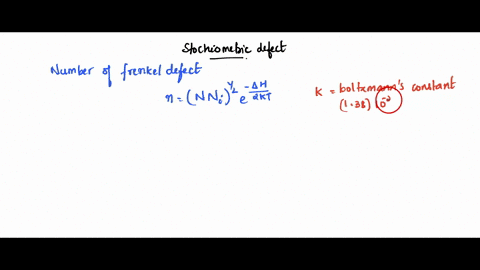 Stochiometric defect
Number of frenkel defect
n = (NNi)^1/2 e^-ΔH/2KT
K = boltzmann's constant
(1.38) 10